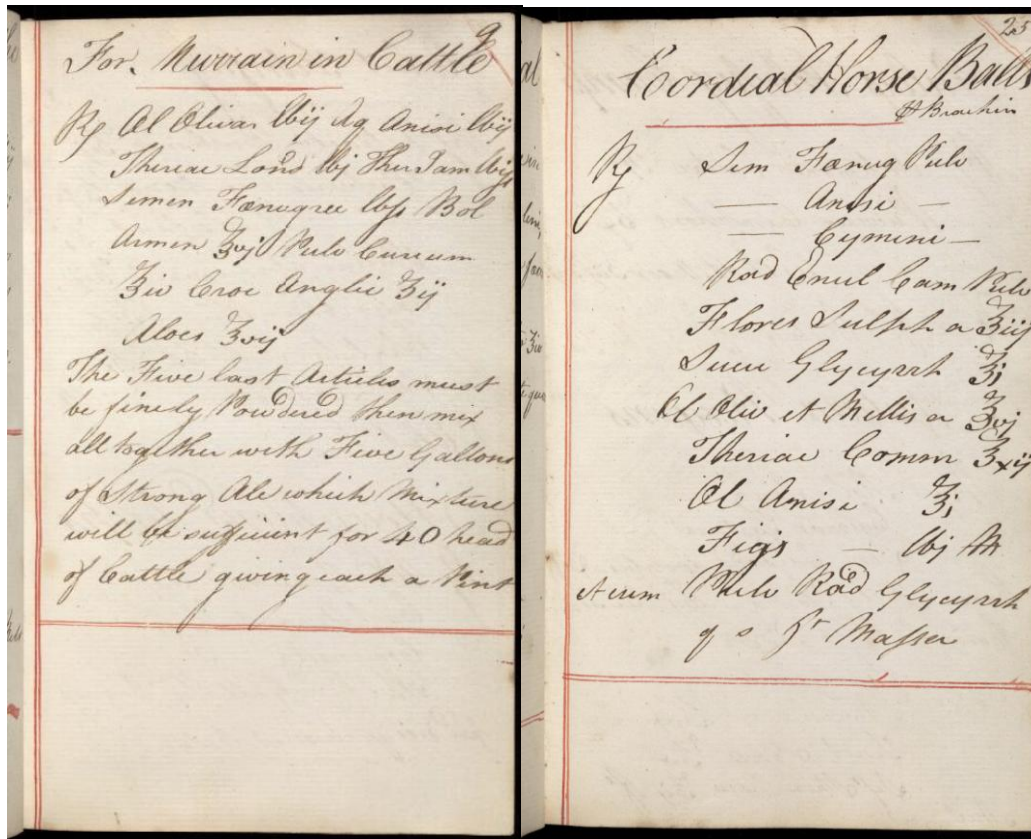 9
For. Murrain in Cattle
Rx Ol Olivar lbij Aq Anisi lbij
Theriac Lond lbj Ther Jam
Semen Fænugree lbfs Bol
Armen ʒvj Pulv Curcum
ʒiv Croc Anglic ʒij
Aloes ʒvij
The Five last Articles must
be finely Powdered then mix
all together with Five Gallons
of Strong Ale which Mixture
will be sufficient for 40 head
of Cattle giving each a Pint
25
Cordial Horse Balls
Rx Sem Fænug Pulv
— Anisi —
— Cymini —
Rad Enul Cam Pulv
Flores Sulph a ʒiij
Succ Glycyrrh ʒj
Ol Oliv et Mellis a ʒvj
Theriac Comm ʒxij
Ol Anisi ʒj
Figs — lbj M
et cum Pulv Rad Glycyrrh
q s ft Massa